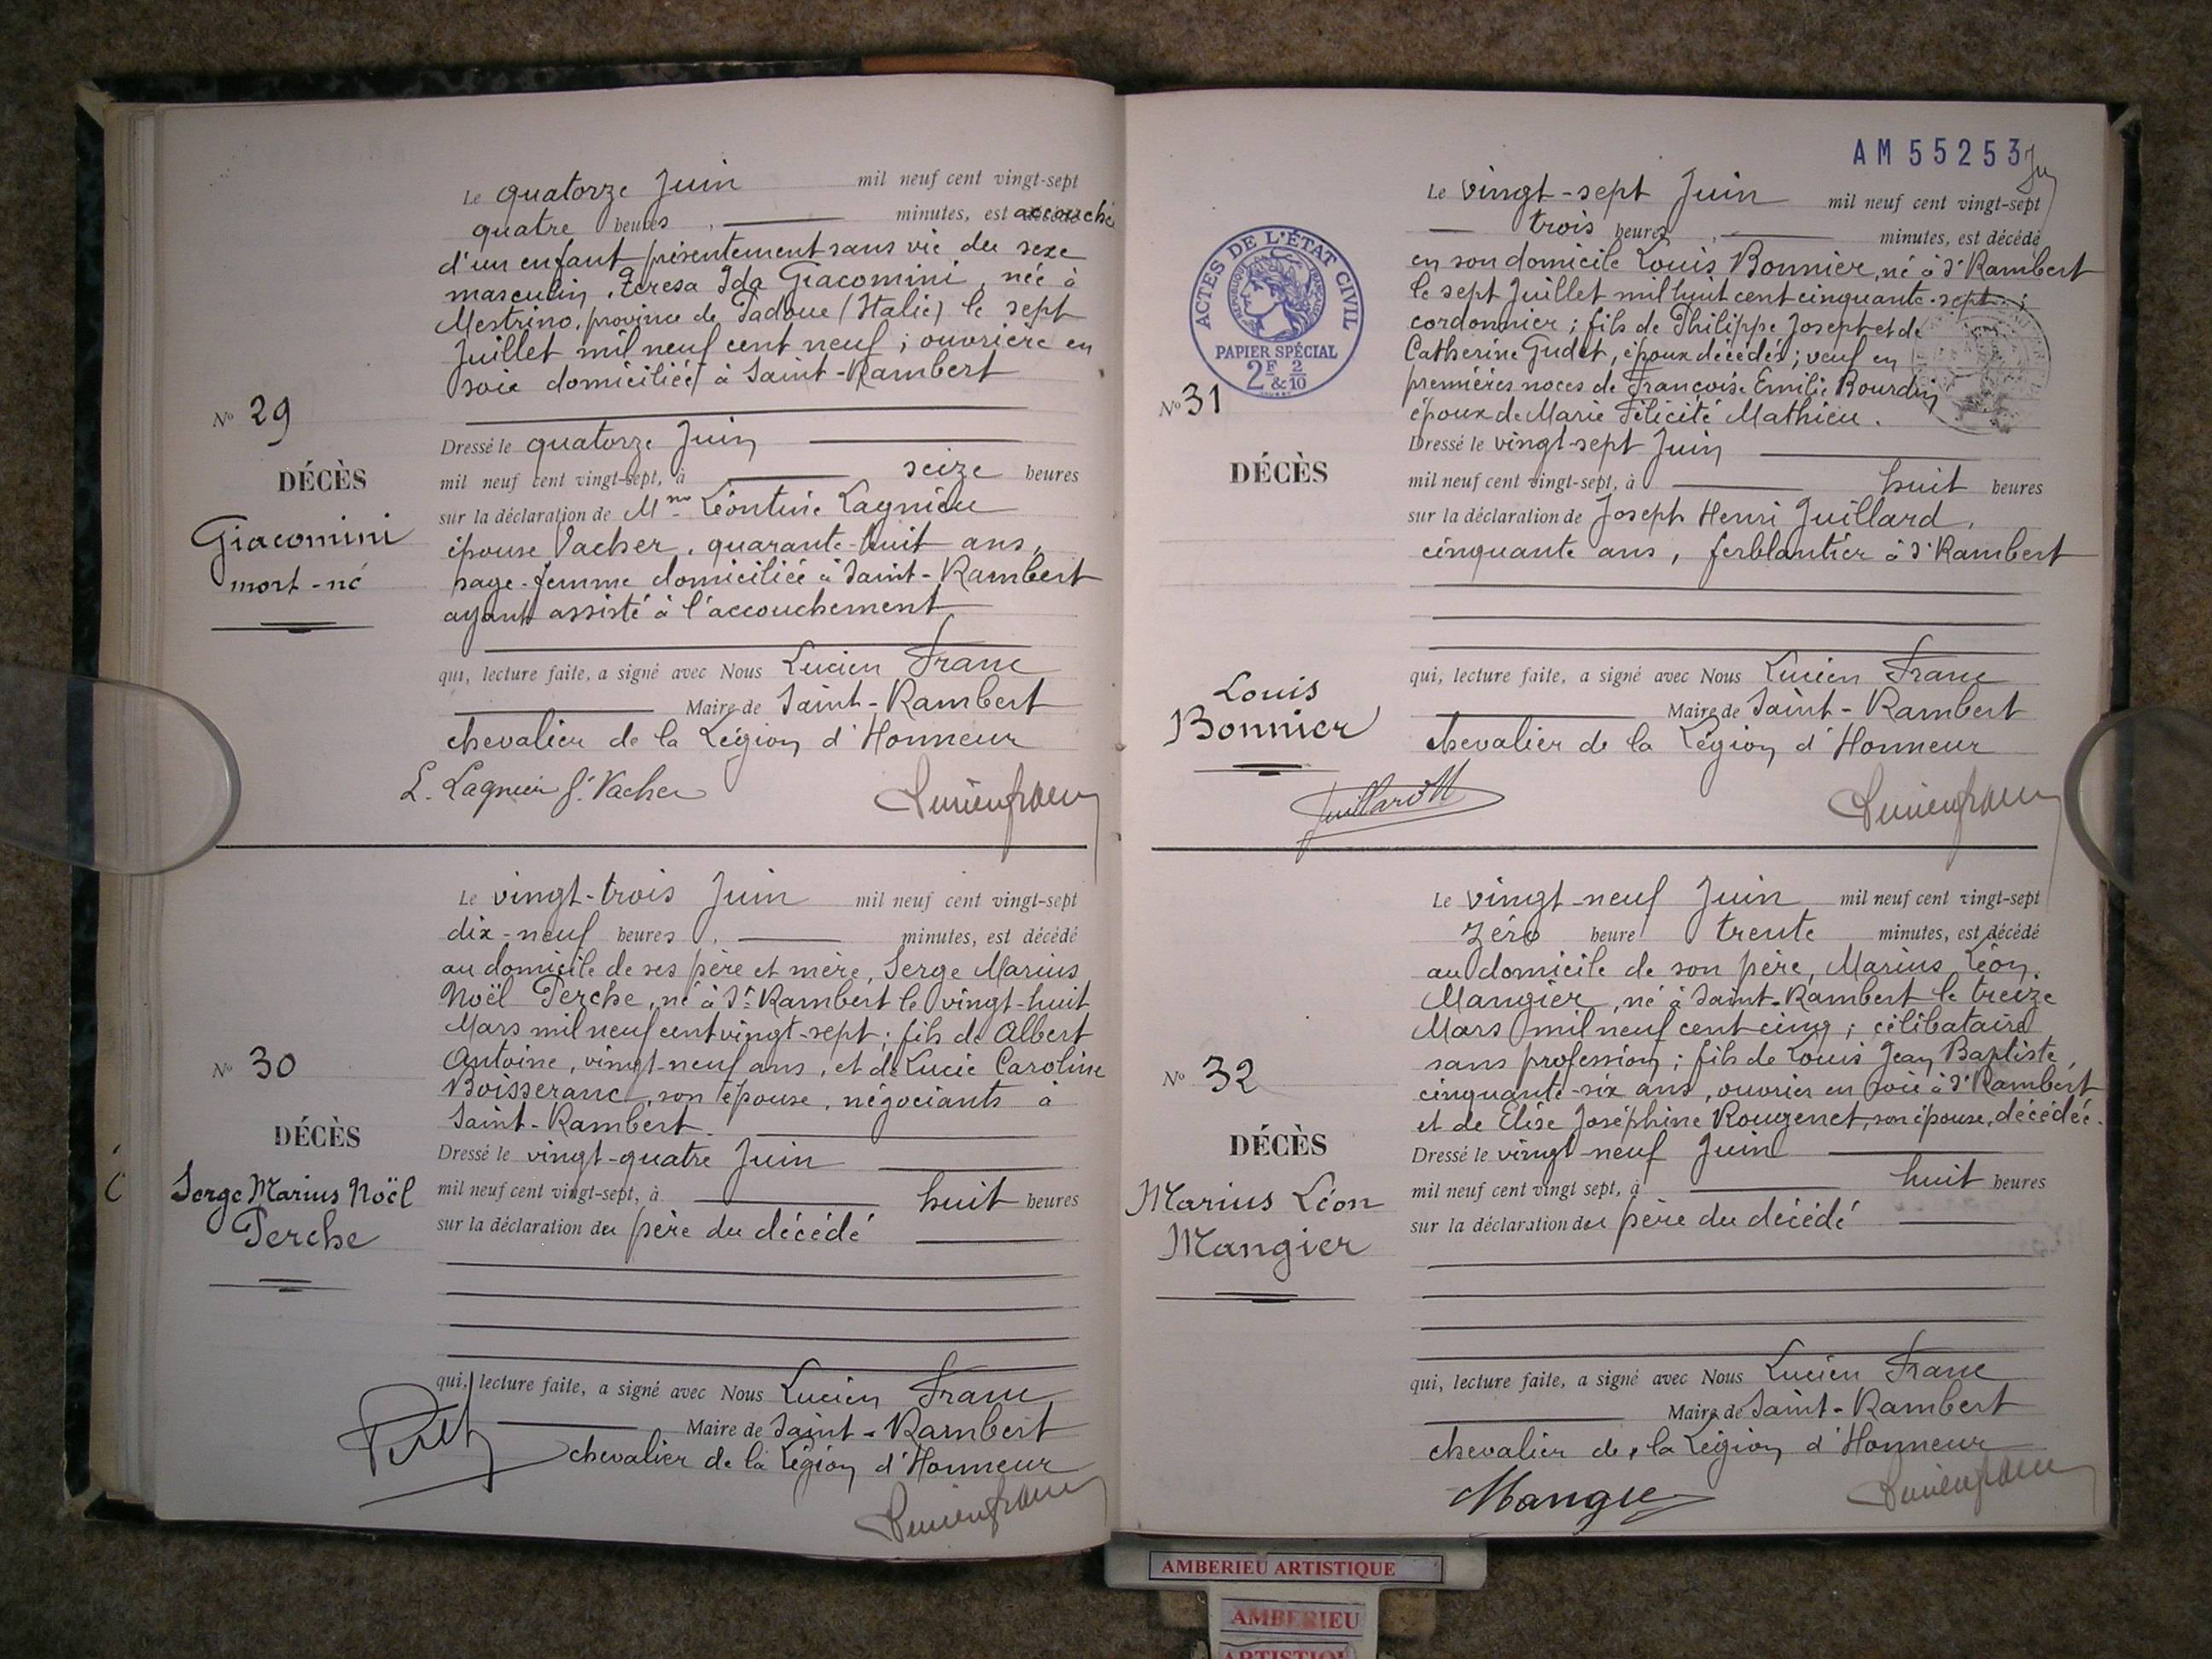 Le quatorze Juin mil neuf cent vingt-sept
quatre heures, minutes, est accouchée
d'un enfant présentement sans vie du sexe
masculin, Teresa Ida Giacomini, née à
Mestrino, province de Padoue (Italie) le sept
Juillet mil neuf cent neuf ; ouvrière en
soie domiciliée à Saint-Rambert
No 29
DÉCÈS
Giacomini
mort-né
Dressé le quatorze Juin
mil neuf cent vingt-sept, à seize heures
sur la déclaration de Mme Léontine Lagnieu
épouse Vacher, quarante-huit ans,
sage-femme domiciliée à Saint-Rambert
ayant assisté à l'accouchement
qui, lecture faite, a signé avec Nous Lucien Franc
Maire de Saint-Rambert
chevalier de la Légion d'Honneur
L. Lagnieu f. Vacher
Lucien franc
Le vingt-trois Juin mil neuf cent vingt-sept
dix-neuf heures, minutes, est décédé
au domicile de ses père et mère, Serge Marius
Noël Perche, né à St Rambert le vingt-huit
Mars mil neuf cent vingt-sept ; fils de Albert
Antoine, vingt-neuf ans, et de Lucie Caroline
Boisseranc, son épouse, négociants à
Saint-Rambert.
No 30
DÉCÈS
Serge Marius Noël
Perche
Dressé le vingt-quatre Juin
mil neuf cent vingt-sept, à huit heures
sur la déclaration du père du décédé
qui, lecture faite, a signé avec Nous Lucien Franc
Maire de Saint-Rambert
chevalier de la Légion d'Honneur
Lucien franc
AM 55253
Le vingt-sept Juin mil neuf cent vingt-sept
trois heures, minutes, est décédé
en son domicile Louis Bonnier, né à St Rambert
le sept Juillet mil huit cent cinquante-sept ;
cordonnier ; fils de Philippe Joseph et de
Catherine Gudet, époux décédés ; veuf en
premières noces de Françoise Emilie Bourdin
époux de Marie Félicité Mathieu.
ACTES DE L'ÉTAT CIVIL
RÉPUBLIQUE FRANÇAISE
PAPIER SPÉCIAL
2F & 2/10
No 31
DÉCÈS
Louis
Bonnier
Dressé le vingt-sept Juin
mil neuf cent vingt-sept, à huit heures
sur la déclaration de Joseph Henri Juillard,
cinquante ans, ferblantier à St Rambert
qui, lecture faite, a signé avec Nous Lucien Franc
Maire de Saint-Rambert
chevalier de la Légion d'Honneur
Juillard H
Lucien franc
Le vingt-neuf Juin mil neuf cent vingt-sept
zéro heure trente minutes, est décédé
au domicile de son père, Marius Léon
Mangier, né à Saint-Rambert le treize
Mars mil neuf cent cinq ; célibataire
sans profession ; fils de Louis Jean Baptiste,
cinquante-six ans, ouvrier en soie à St Rambert
et de Elise Joséphine Rougenet, son épouse, décédée.
No 32
DÉCÈS
Marius Léon
Mangier
Dressé le vingt-neuf Juin
mil neuf cent vingt sept, à huit heures
sur la déclaration du père du décédé
qui, lecture faite, a signé avec Nous Lucien Franc
Maire de Saint-Rambert
chevalier de la Légion d'Honneur
Mangier
Lucien franc
AMBERIEU ARTISTIQUE
AMBERIEU
ARTISTIQUE